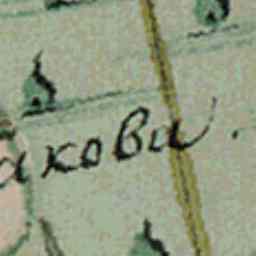 акова.